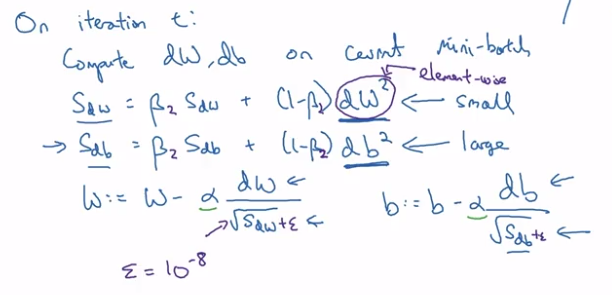 On iteration t:
Compute dW, db on current mini-batch
element-wise
S_dw = β₂ S_dw + (1-β₂) dW² ← small
→ S_db = β₂ S_db + (1-β₂) db² ← large
W := W - α dW/√(S_dw+ε) ← b := b - α db/√(S_db+ε) ←
ε = 10⁻⁸